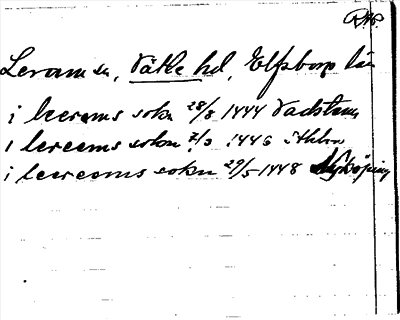 RAP.
Lerum sn, Vätle hd, Elfsborgs län
i leerems sokn 28/8 1444 Vadstena
i lereems sokn 7/3 1446
i leereems sokn 29/5 1448 Nyköping